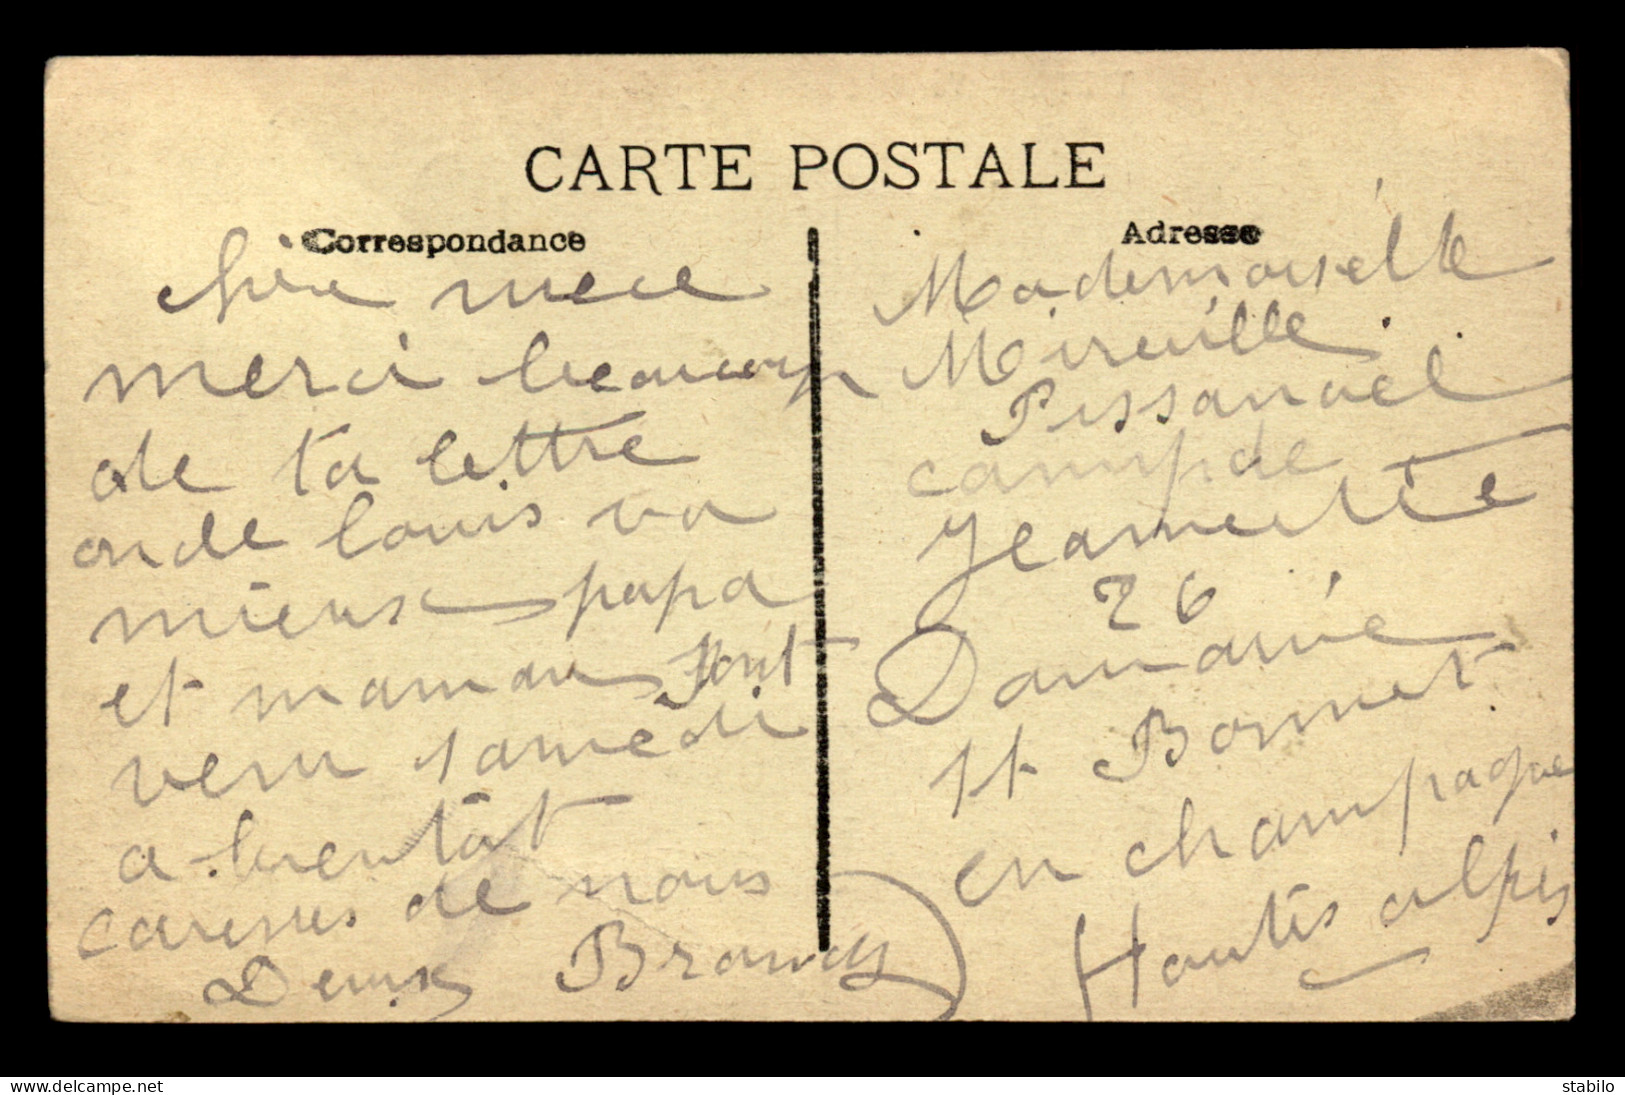 CARTE POSTALE
Correspondance
chère niece
merci beaucoup
de ta lettre
oncle louis va
mieux papa
et maman sont
venu samedi
a bientôt
caresses de nous
Denis Brandy
Adresse
Mademoiselle
Mireille
Pissanael
camp de
Jeannette
26
Domaine
St Bonnet
en champagne
Hautes alpes
www.delcampe.net
stabilo